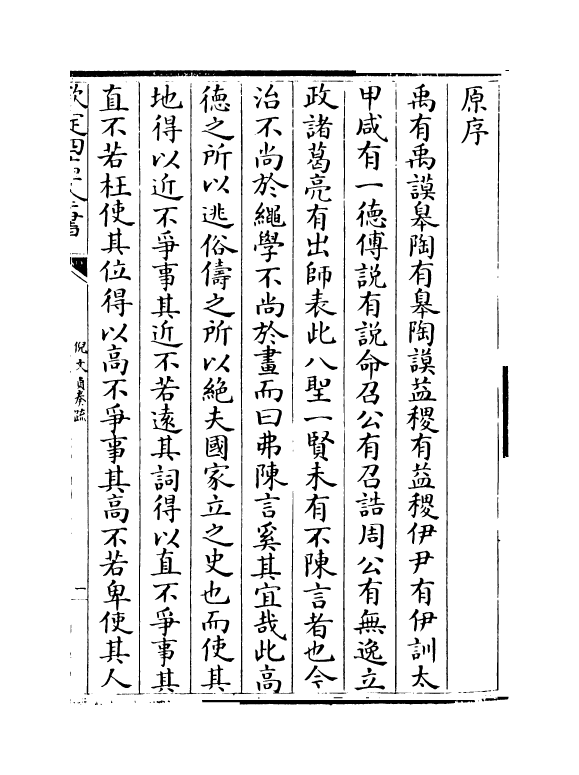 原序
禹有禹謨皋陶有皋陶謨益稷有益稷伊尹有伊訓太
甲咸有一徳傅説有説命召公有召誥周公有無逸立
政諸葛亮有出師表此八聖一賢未有不陳言者也今
治不尚於繩學不尚於畫而曰弗陳言奚其宜哉此髙
徳之所以逃俗儔之所以絶夫國家立之史也而使其
地得以近不爭事其近不若逺其詞得以直不爭事其
直不若枉使其位得以髙不爭事其髙不若卑使其人
欽定四庫全書
倪文貞奏疏
一